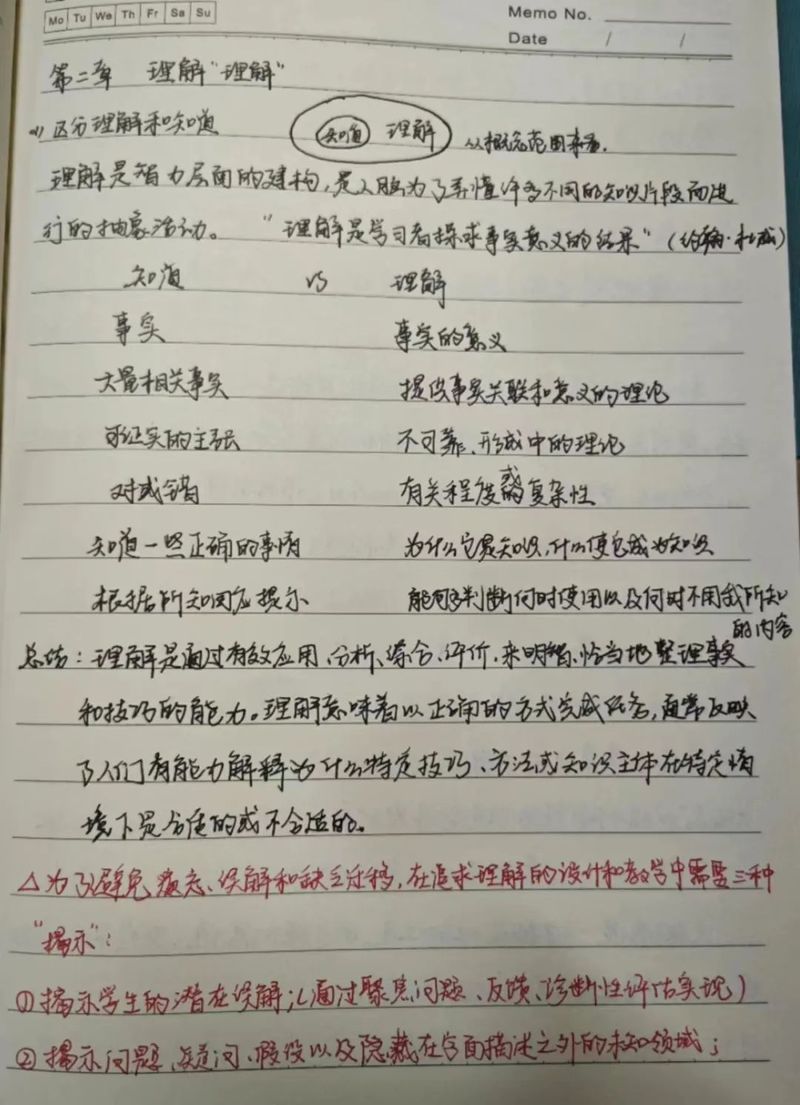 Mo Tu We Th Fr Sa Su
Memo No.
Date / /
第二章 理解“理解”
(1) 区分理解和知道 知道 理解 从概念范围来看.
理解是智力层面的建构,是人脑为了弄懂许多不同的知识片段而进
行的抽象活动。“理解是学习者探求事实意义的结果”(约翰·杜威)
知道 VS 理解
事实 事实的意义
大量相关事实 提供事实关联和意义的理论
可证实的主张 不可靠、形成中的理论
对或错 有关程度或复杂性
知道一些正确的事情 为什么它是知识,什么使它成为知识
根据所知回应提示 能够判断何时使用以及何时不用我所知
的内容
总结:理解是通过有效应用、分析、综合、评价,来明智、恰当地整理事实
和技巧的能力。理解意味着以正确的方式完成任务,通常反映
了人们有能力解释为什么特定技巧、方法或知识主体在特定情
境下是合适的或不合适的。
△为了避免遗忘、误解和缺乏迁移,在追求理解的设计和教学中需要三种
“揭示”:
①揭示学生的潜在误解;(通过聚焦问题、反馈、诊断性评估实现)
②揭示问题、疑问、假设以及隐藏在字面描述之外的未知领域;